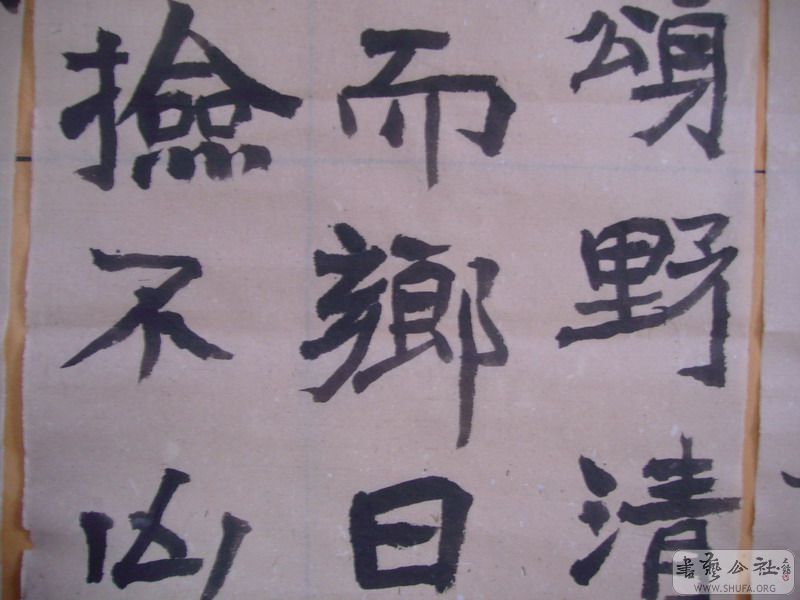 頌野清
而鄉日
撿不凶
書藝公社
WWW.SHUFA.ORG